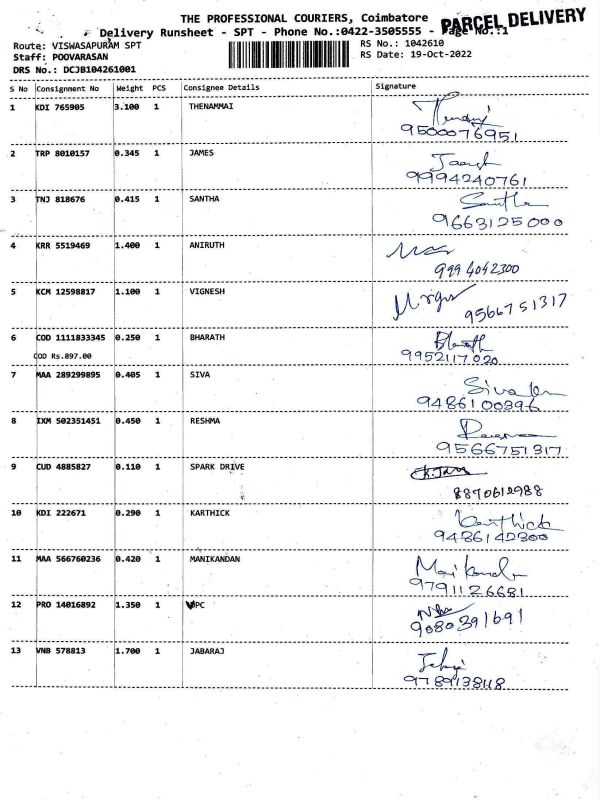 THE PROFESSIONAL COURIERS, Coimbatore
PARCEL DELIVERY
Delivery Runsheet - SPT - Phone No.:0422-3505555 - Page No.:1
Route: VISWASAPURAM SPT
RS No.: 1042610
Staff: POOVARASAN
RS Date: 19-Oct-2022
DRS No.: DCJB104261001
S No Consignment No Weight PCS Consignee Details Signature
1 KDI 765905 3.100 1 THENAMMAI
9500076951
2 TRP 8010157 0.345 1 JAMES
9994240761
3 TNJ 818676 0.415 1 SANTHA
9663125000
4 KRR 5519469 1.400 1 ANIRUTH
9994042300
5 KCM 12598817 1.100 1 VIGNESH
9566751317
6 COD 1111833345 0.250 1 BHARATH Bharath
COD Rs.897.00 9952117020
7 MAA 289299895 0.405 1 SIVA
9486100396
8 IXM 502351451 0.450 1 RESHMA
9566751317
9 CUD 4885827 0.110 1 SPARK DRIVE
8870612988
10 KDI 222671 0.290 1 KARTHICK Karthick
9486142300
11 MAA 566760236 0.420 1 MANIKANDAN
9791126681
12 PRO 14016892 1.350 1
9080391691
13 VNB 578813 1.700 1 JABARAJ